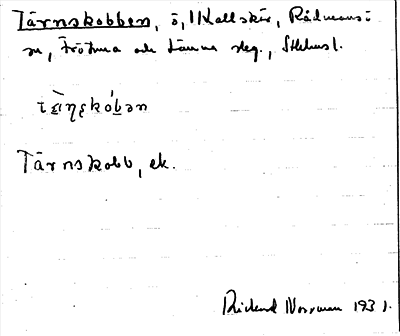 Tärnskobben, ö, i Kallskär, Rådmansö
sn, Frötuna och Länna skg., Sthlms l.
Tärnskobb, ek.
Rickard Norrman 1931.